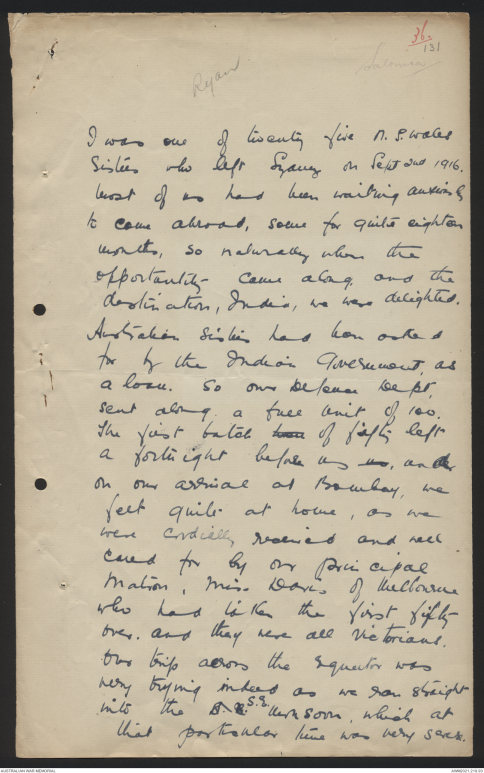 36.
131
Ryan
I was one of twenty five N.S. Wales
Sisters who left Sydney on Sept 2nd 1916.
Most of us had been waiting anxiously
to come abroad, some for quite eighteen
months, so naturally when the
opportunity came along, and the
destination, India, we were delighted.
Australian Sisters had been asked
for by the Indian Government, as
a loan. So our Defence Dept,
sent along a full unit of 100.
The first batch of fifty left
a fortnight before us, and
on our arrival at Bombay, we
felt quite at home, as we
were cordially received and well
cared for by our principal
Matron, Miss Davis of Melbourne
who had taken the first fifty
over. and they were all Victorians.
Our trip across the equator was
very trying indeed as we ran straight
into the S.E. Monsoon, which at
that particular time was very severe.
AUSTRALIAN WAR MEMORIAL
AWM2021.219.53